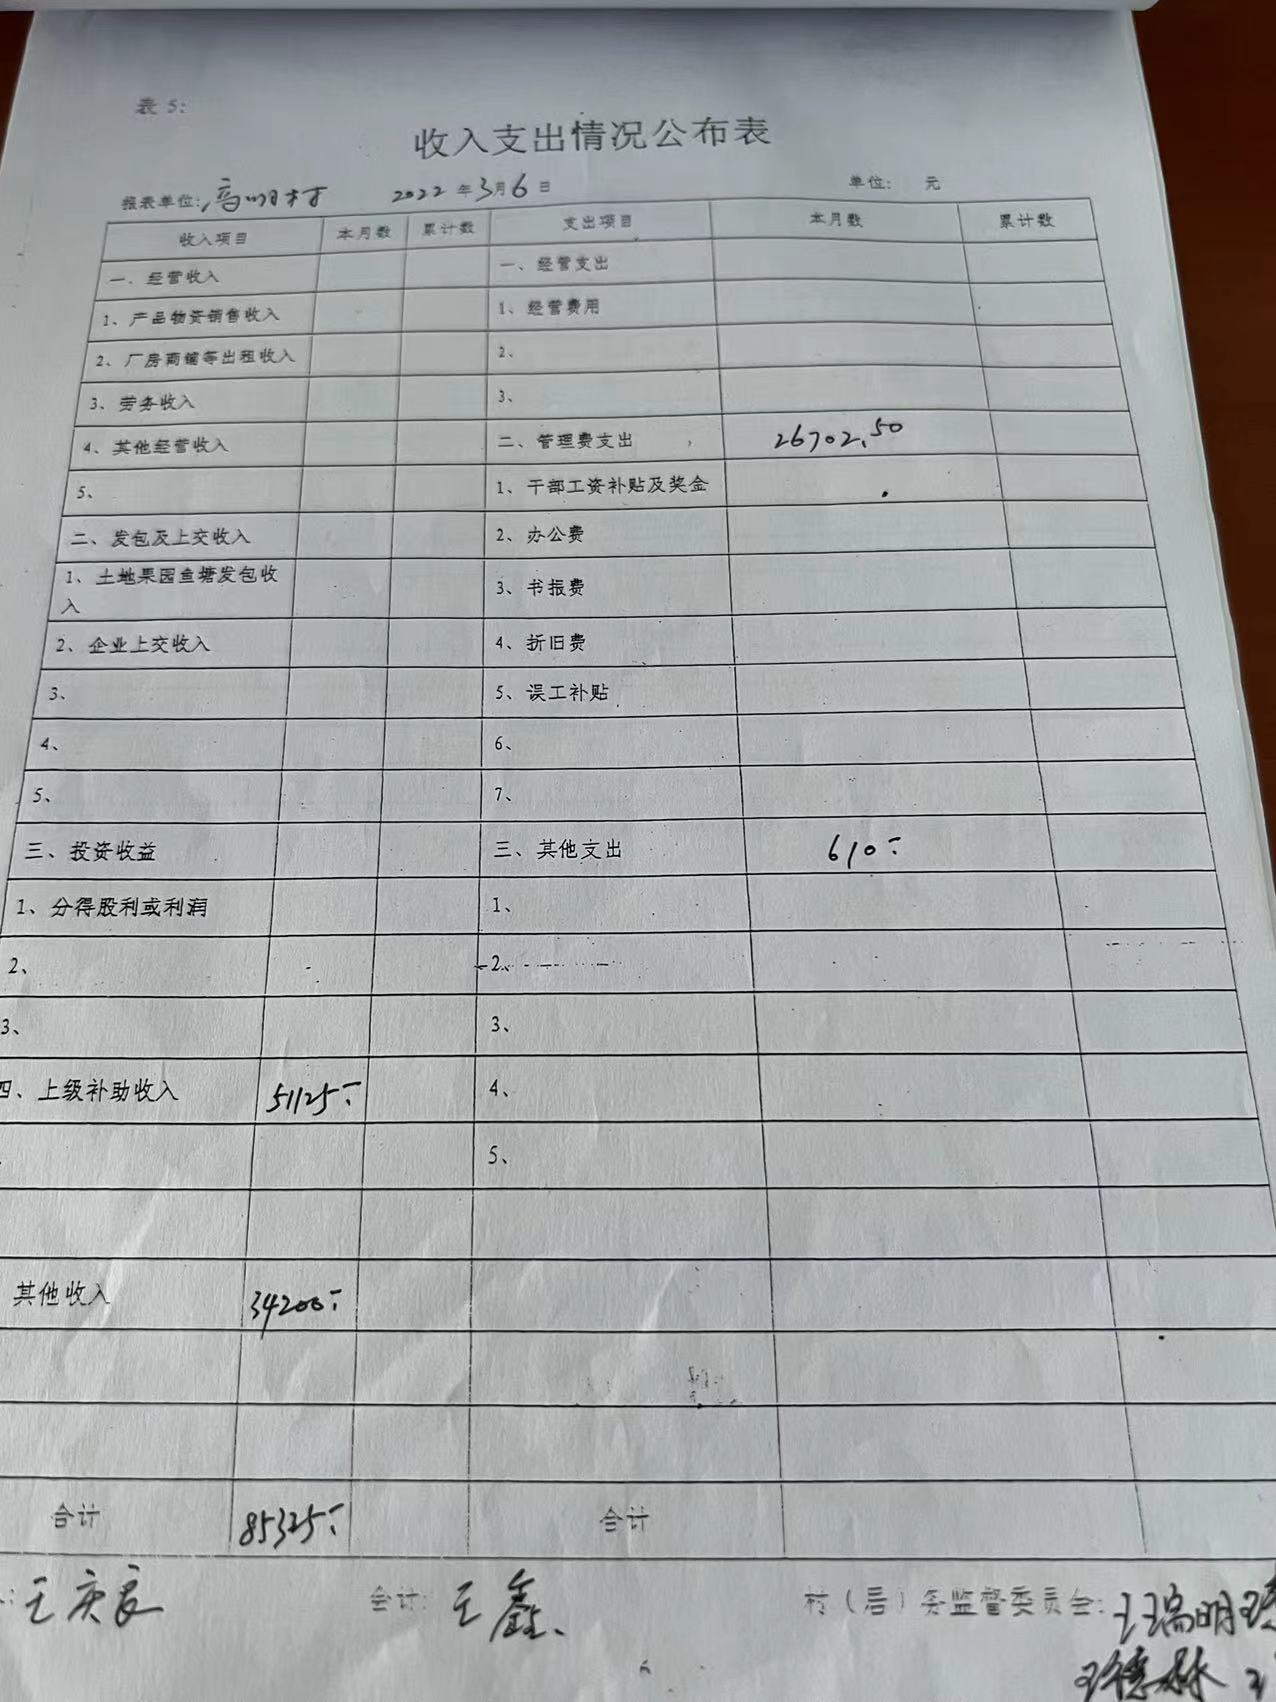 表 5:
收入支出情况公布表
报表单位: 高明村 2022 年 3 月 6 日 单位: 元
收入项目 本月数 累计数 支出项目 本月数 累计数
一、经营收入 一、经营支出
1、产品物资销售收入 1、经营费用
2、厂房商铺等出租收入 2、
3、劳务收入 3、
4、其他经营收入 二、管理费支出 26702.50
5、 1、干部工资补贴及奖金
二、发包及上交收入 2、办公费
1、土地果园鱼塘发包收
入 3、书报费
2、企业上交收入 4、折旧费
3、 5、误工补贴
4、 6、
5、 7、
三、投资收益 三、其他支出 610.-
1、分得股利或利润 1、
2、 2、
3、 3、
四、上级补助收入 51125.- 4、
5、
其他收入 34200.-
合计 85325.- 合计
王庚良 会计: 王鑫 村（居）务监督委员会: 王瑞明